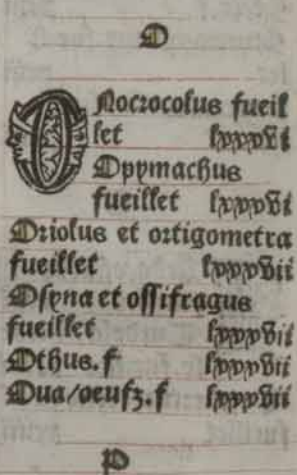 O
ONocrocolus fueil
let lxxxvi
Opymachus
fueillet lxxxvi
Oriolus et ortigometra
fueillet lxxxvii
Osyna et ossifragus
fueillet lxxxvii
Othus.f lxxxvii
Oua/oeufz.f lxxxvii
P